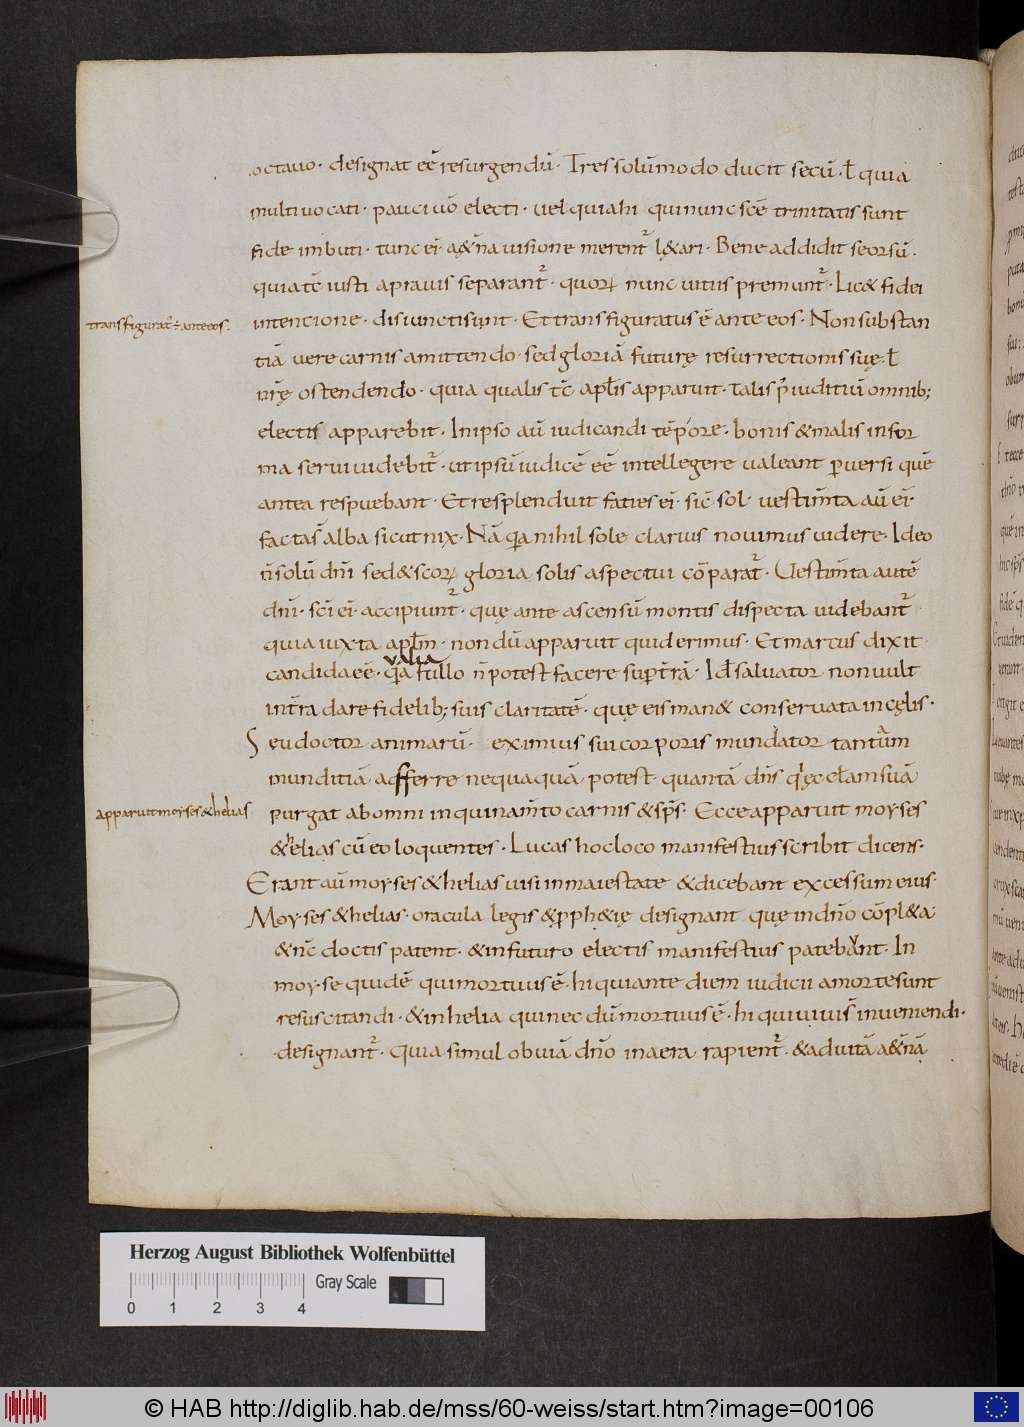 octauo · designat eē resurgendū · Tres solūmodo ducit secū · ł quia
multi uocati · pauci uō electi · uel quia hi qui nunc scē trinitatis sunt
fide imbuti · tunc ei · a&̨̄na uisione merent̄ l&ari · Bene addidit seorsū ·
quia tc̄ iusti a prauis separant̄ · quoꝝ nunc uitiis premunt̄ · Lic& fidei
transfigurat᷒ ÷ ante eos ·
intencione · disiuncti sunt · Et transfiguratus ē ante eos · Non substan
tiā uere carnis amittendo · sed gloriā futurę resurrectionis suę · ł
nr̄ę ostendendo · quia qualis tc̄ apłis apparuit · talis p̄ iuditiū omnib;
electis apparebit · In ipso aū iudicandi tēpore · bonis & malis in for
ma serui uidebit̄ · ut ipsū iudicē eē intellegere ualeant ꝑuersi quē
antea respuebant · Et resplenduit faties ei · sic̄ sol · uestim̄ta aū ei ·
facta s̄ alba sicut nix · Nā q̄a nihil sole clarius nouimus uidere · Ideo
n̄ solū dn̄i sed & scoꝝ gloria solis aspectui cōparat̄ · Uestim̄ta autē
dn̄i · sc̄i ei · accipiunt̄ · quę ante ascensū montis dispecta uidebant̄
quia iuxta apłm · nondū apparuit quid erimus · Et marcus dixit ·
ualia
candida eē · q̄a fullo n̄ potest facere sup t̄rā · Id ē saluator non uult
in t̄ra dare fidelib; suis claritatē · quę eis man& conseruata in cęlis ·
Seu doctor animarū · eximius sui corporis mundator tantum
munditiā afferre nequaquā potest quantā dn̄s q̇ ęcclam suā
apparuit moyses & helias
purgat ab omni inquinam̄to carnis & sp̄s · Ecce apparuit moyses
& helias cū eo loquentes · Lucas hoc loco manifestius scribit dicens ·
Erant aū moyses & helias uisi in maiestate & dicebant excessum eius ·
Moyses & helias · oracula legis & ꝓph&ię designant quę in dn̄o cōpl&a
& nc̄ doctis patent · & in futuro electis manifestius patebunt · In
moyse quidē qui mortuus ē · hi qui ante diem iudicii a morte sunt
resuscitandi · & in helia qui nec dū mortuus ē · hi qui uiui s̄ inueniendi ·
designant̄ · Quia simul obuiā dn̄o in aera rapient̄ · & ad uitā a&̨̄nā
Herzog August Bibliothek Wolfenbüttel
Gray Scale
0 1 2 3 4
© HAB http://diglib.hab.de/mss/60-weiss/start.htm?image=00106